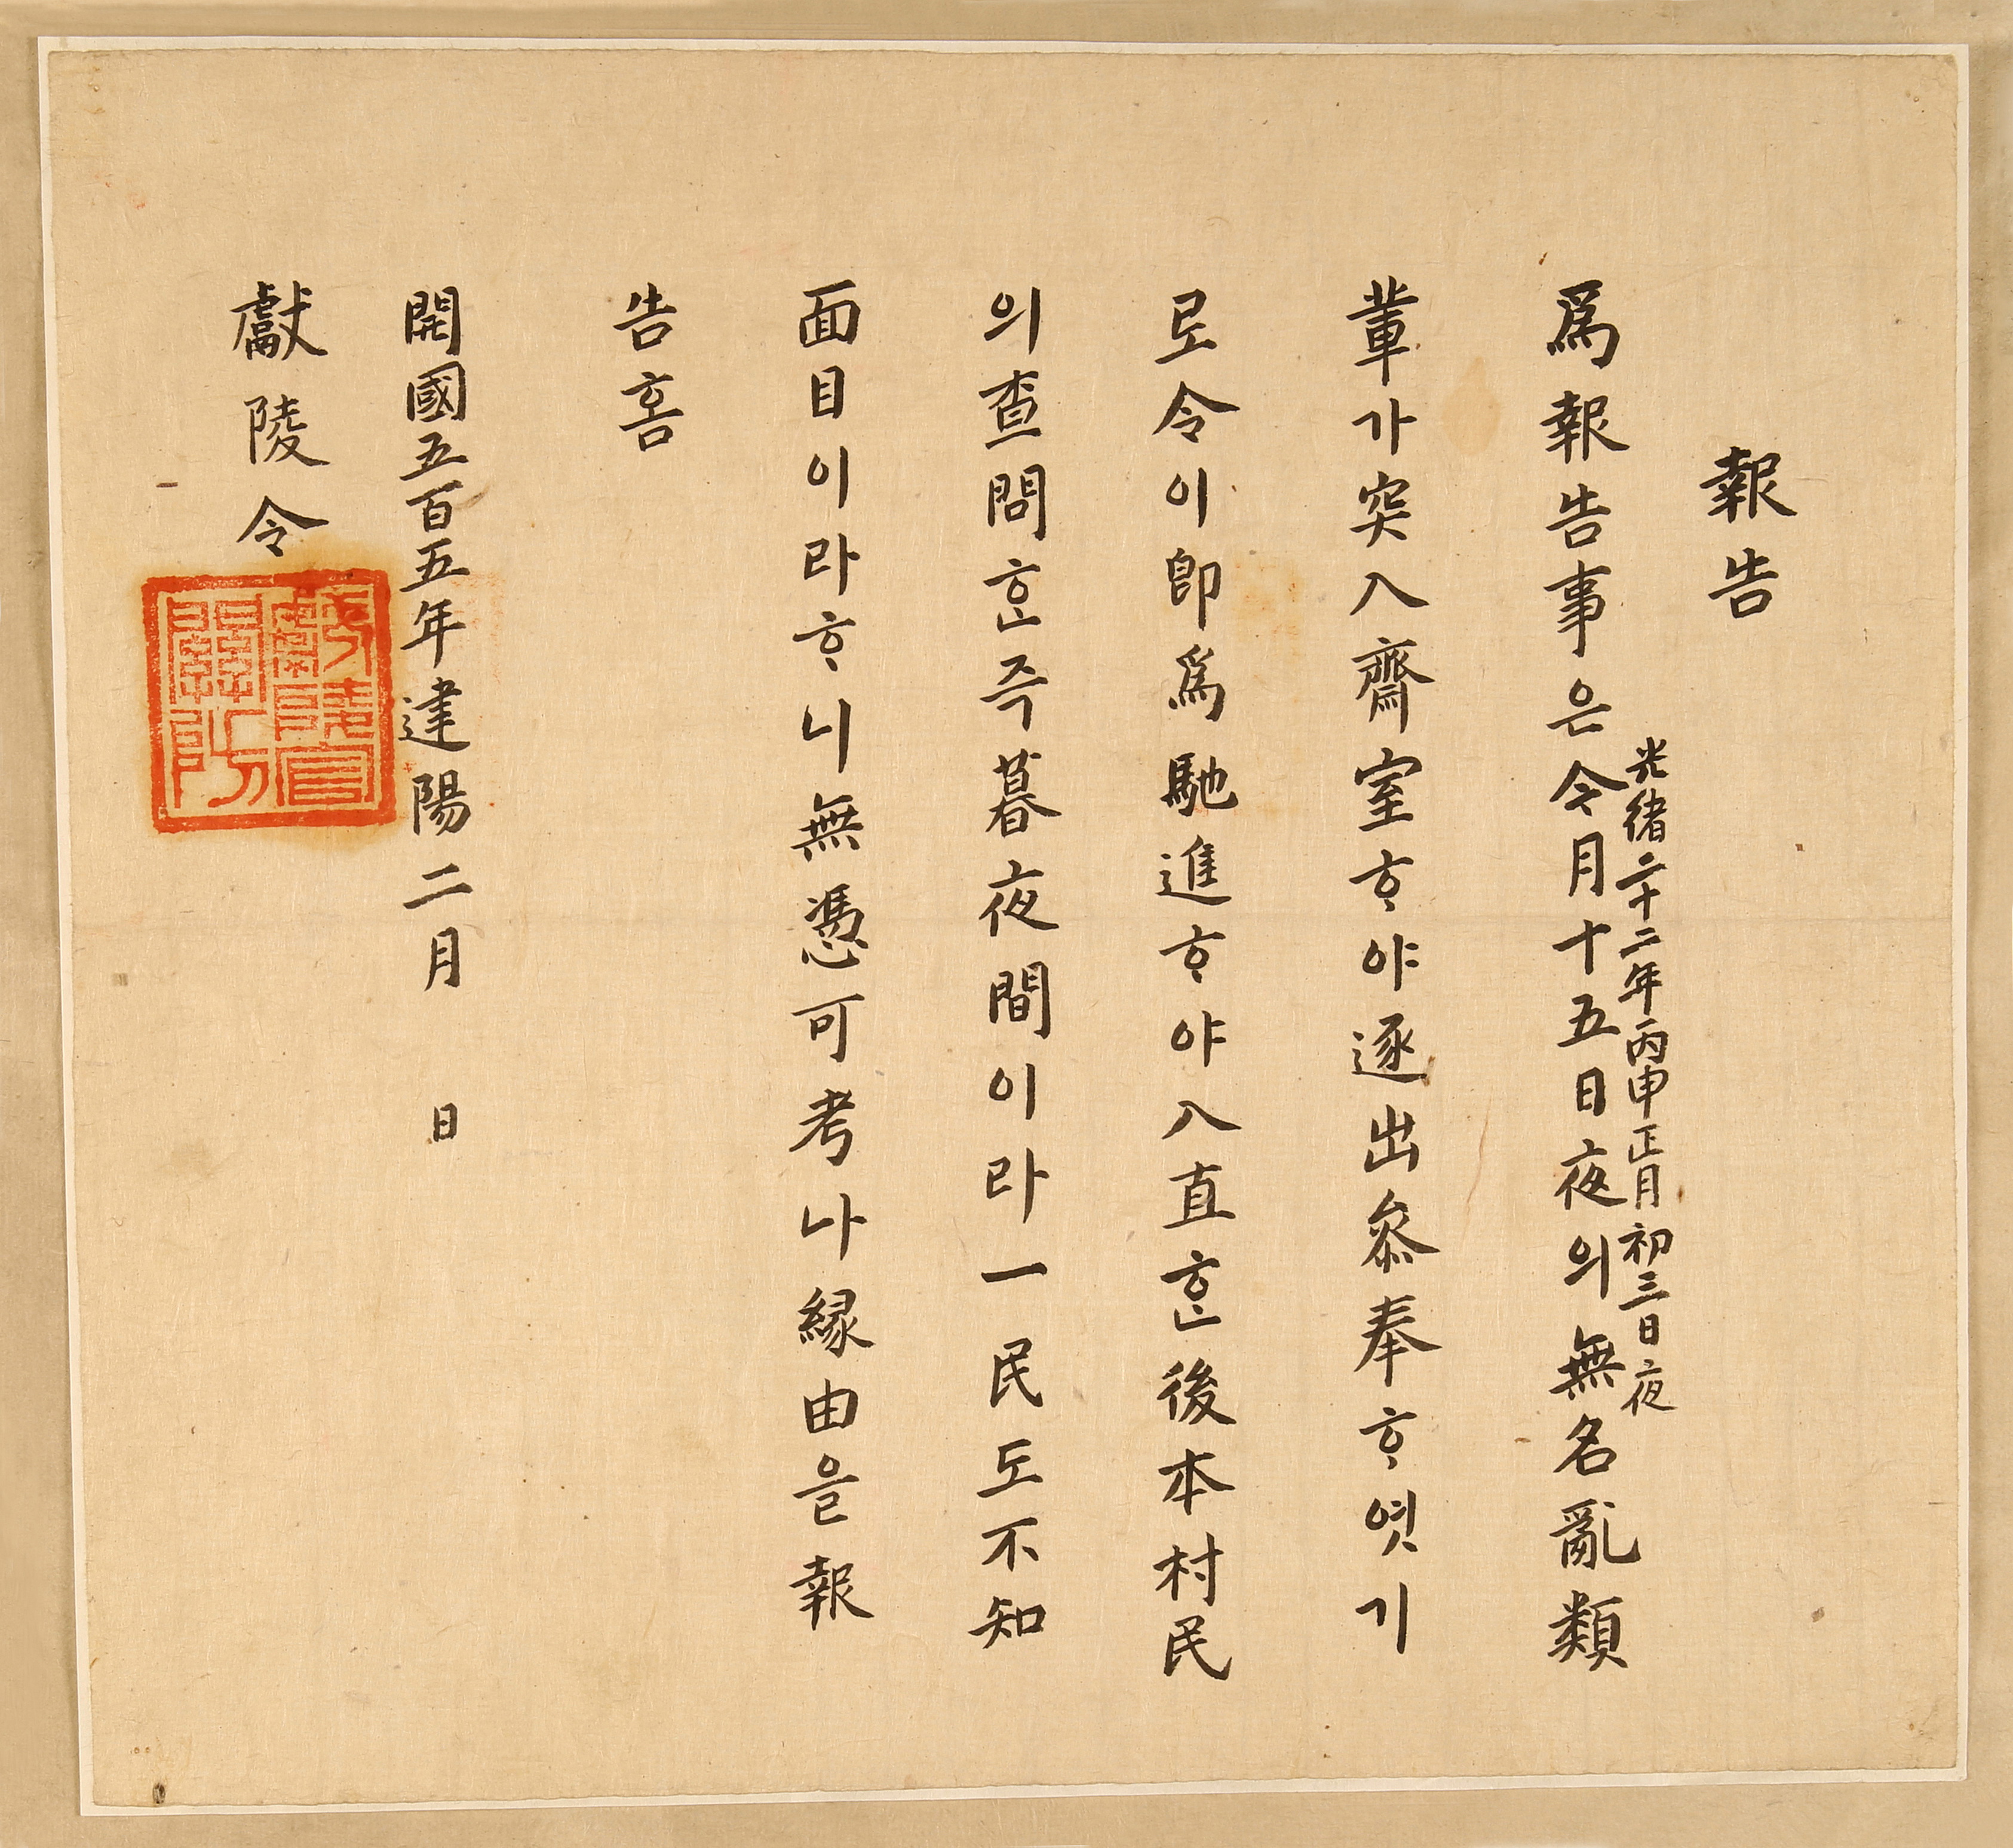 報告
光緖二十二年丙申正月初三日夜
爲報告事은今月十五日夜의無名亂類
輩가突入齋室ᄒᆞ야逐出叅奉ᄒᆞ엿기
로令이卽爲馳進ᄒᆞ야入直ᄒᆞᆫ後本村民
의査問ᄒᆞᆫ즉暮夜間이라一民도不知
面目이라ᄒᆞ니無憑可考나緣由을報
告홈
開國五百五年建陽二月 日
獻陵令